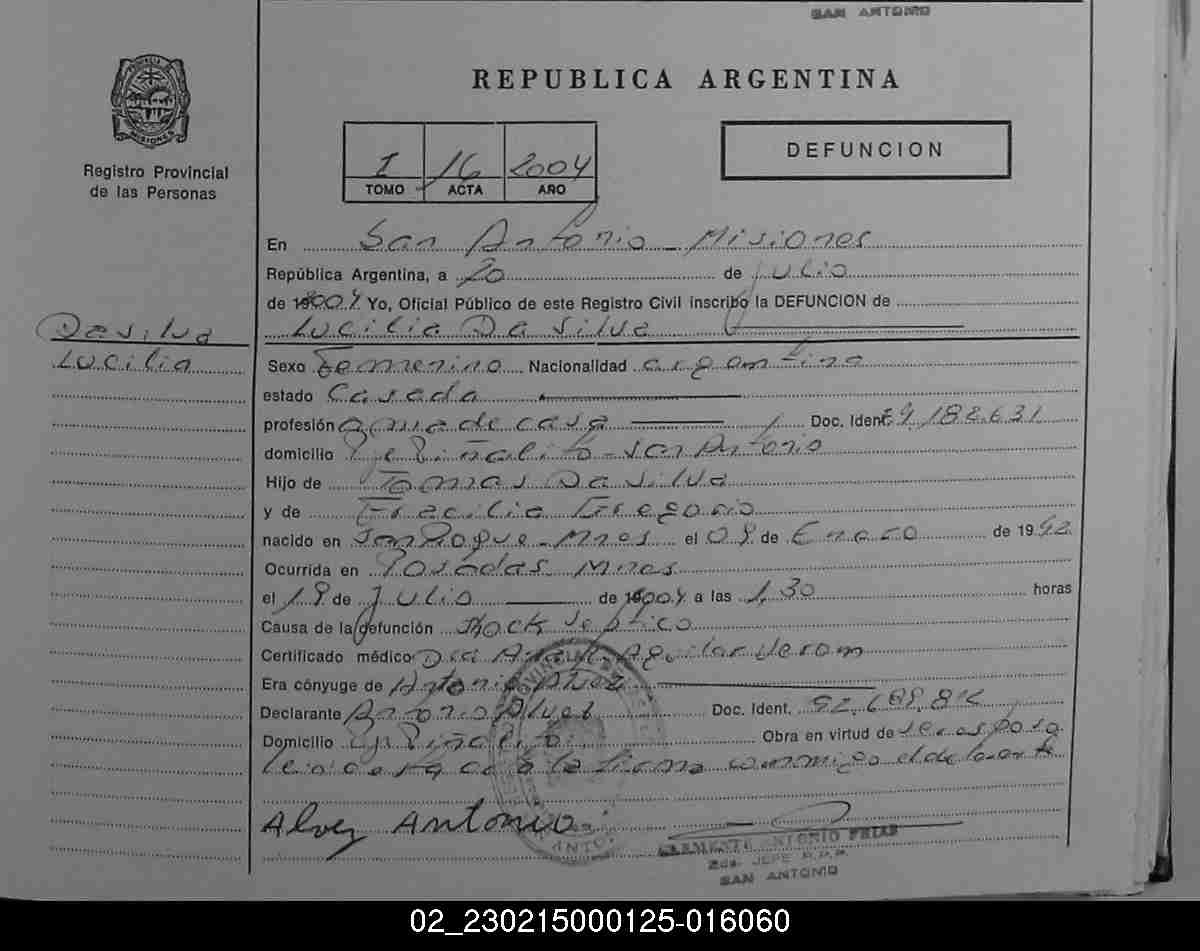 SAN ANTONIO
REPUBLICA ARGENTINA
PROVINCIA DE
MISIONES
Registro Provincial
de las Personas
I 16 2004
TOMO ACTA AÑO
DEFUNCION
En San Antonio - Misiones
República Argentina, a 20 de julio
de 2004 Yo, Oficial Público de este Registro Civil inscribo la DEFUNCION de
Lucilia Da Silva
Da silva
Lucilia
Sexo Femenino Nacionalidad argentina
estado Casada
profesión ama de casa Doc. Ident. 182.631
domicilio Piñalito - San Antonio
Hijo de Tomas Da Silva
y de Gregorio
nacido en San Roque - Mnes el 09 de Enero de 19
Ocurrida en Posadas Mnes
el 19 de Julio de 2004 a las 1,30 horas
Causa de la defunción Shock septico
Certificado médico Dra Aguilar
Era cónyuge de Antonio Alvez
Declarante Antonio Alvez Doc. Ident. 92.689.
Domicilio Piñalito Obra en virtud de ser esposo
leida esta acta la firma conmigo el declarante
Alvez Antonio
CLEMENTE ANTONIO FRIAS
2do. JEFE R.P.P.
SAN ANTONIO
02_230215000125-016060